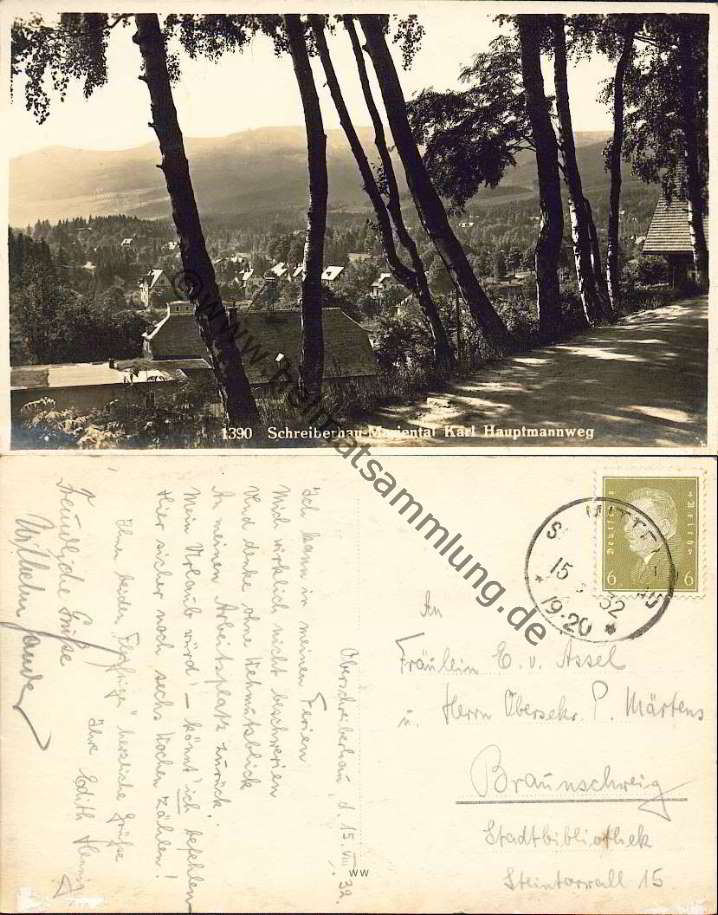 1390 Schreiberhau-Mariental Karl Hauptmannweg
© www.heimatsammlung.de
Oberschreiberhau, d. 15. VII. 32.
Ich kann in meinen Ferien
Mich wirklich nicht beschweren
Und denke ohne Wehmutsblick
An meinen Arbeitsplatz zurück.
Mein Urlaub würd' – könnt' ich befehlen –
Hier sicher noch sechs Wochen zählen!
Ihnen beiden herzliche Grüße
Ihre Edith
Freundliche Grüße
Wilhelm
Deutsches Reich
6 6
15 32
19-20
An
Fräulein E. v. Assel
u. Herrn Obersekr. P. Märtens
Braunschweig
Stadtbibliothek
Steintorwall 15
ww